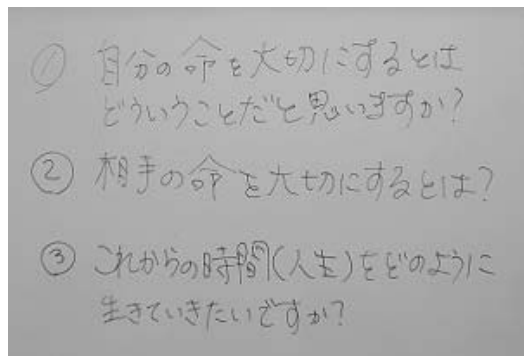 ① 自分の命を大切にするとは
どういうことだと思いますか?
② 相手の命を大切にするとは?
③ これからの時間(人生)をどのように
生きていきたいですか?